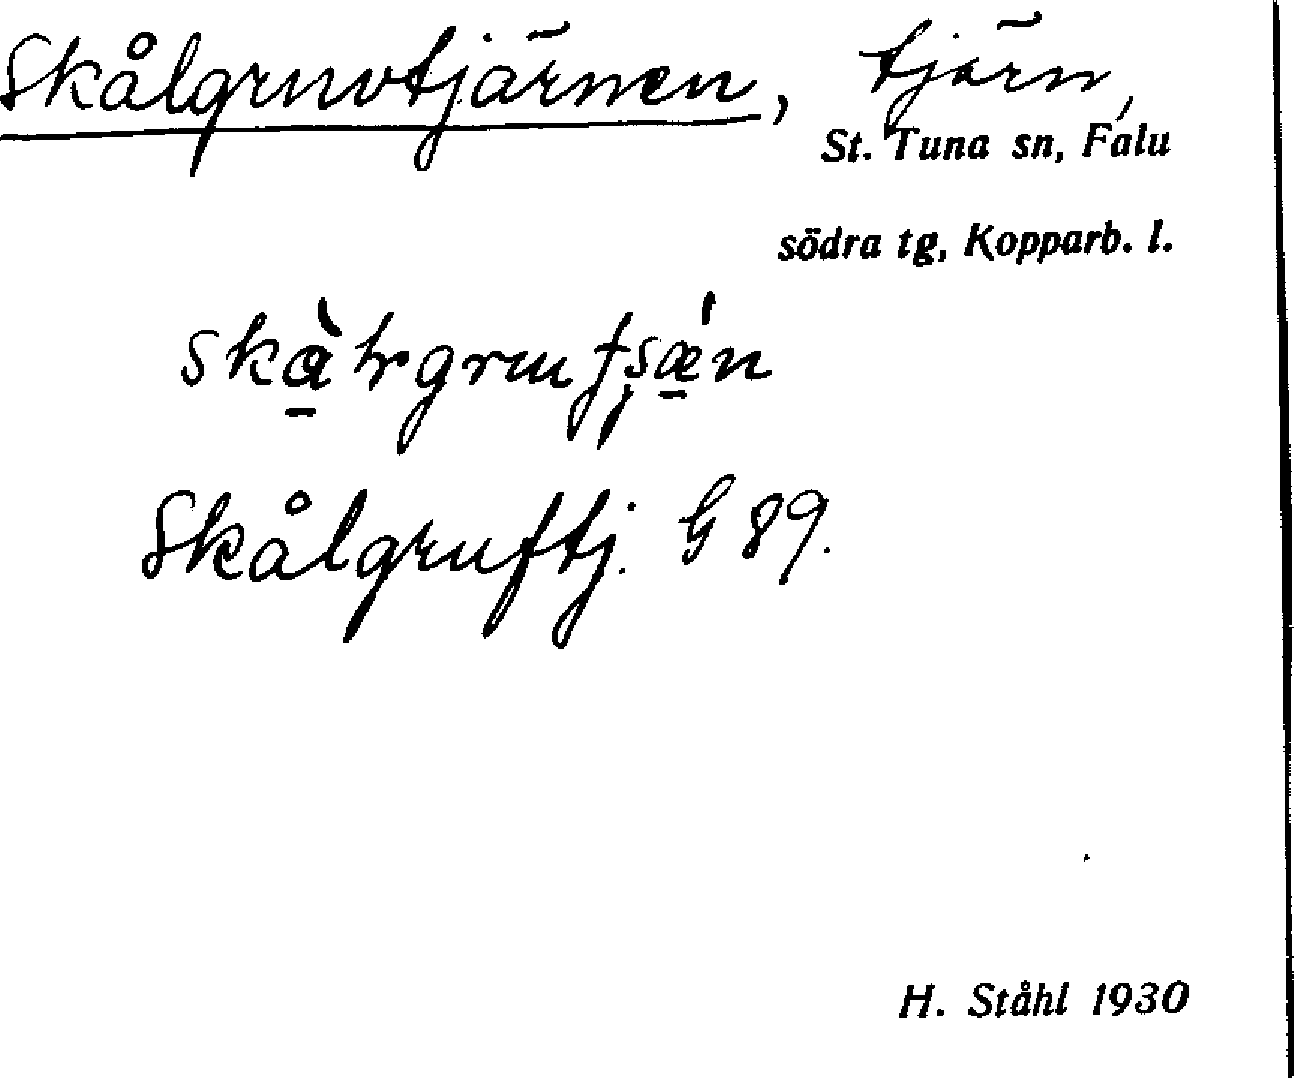 Skålgruvtjärnen, tjärn,
St. Tuna sn, Falu
södra tg, Kopparb. l.
Skålgruftj. G 89.
H. Ståhl 1930